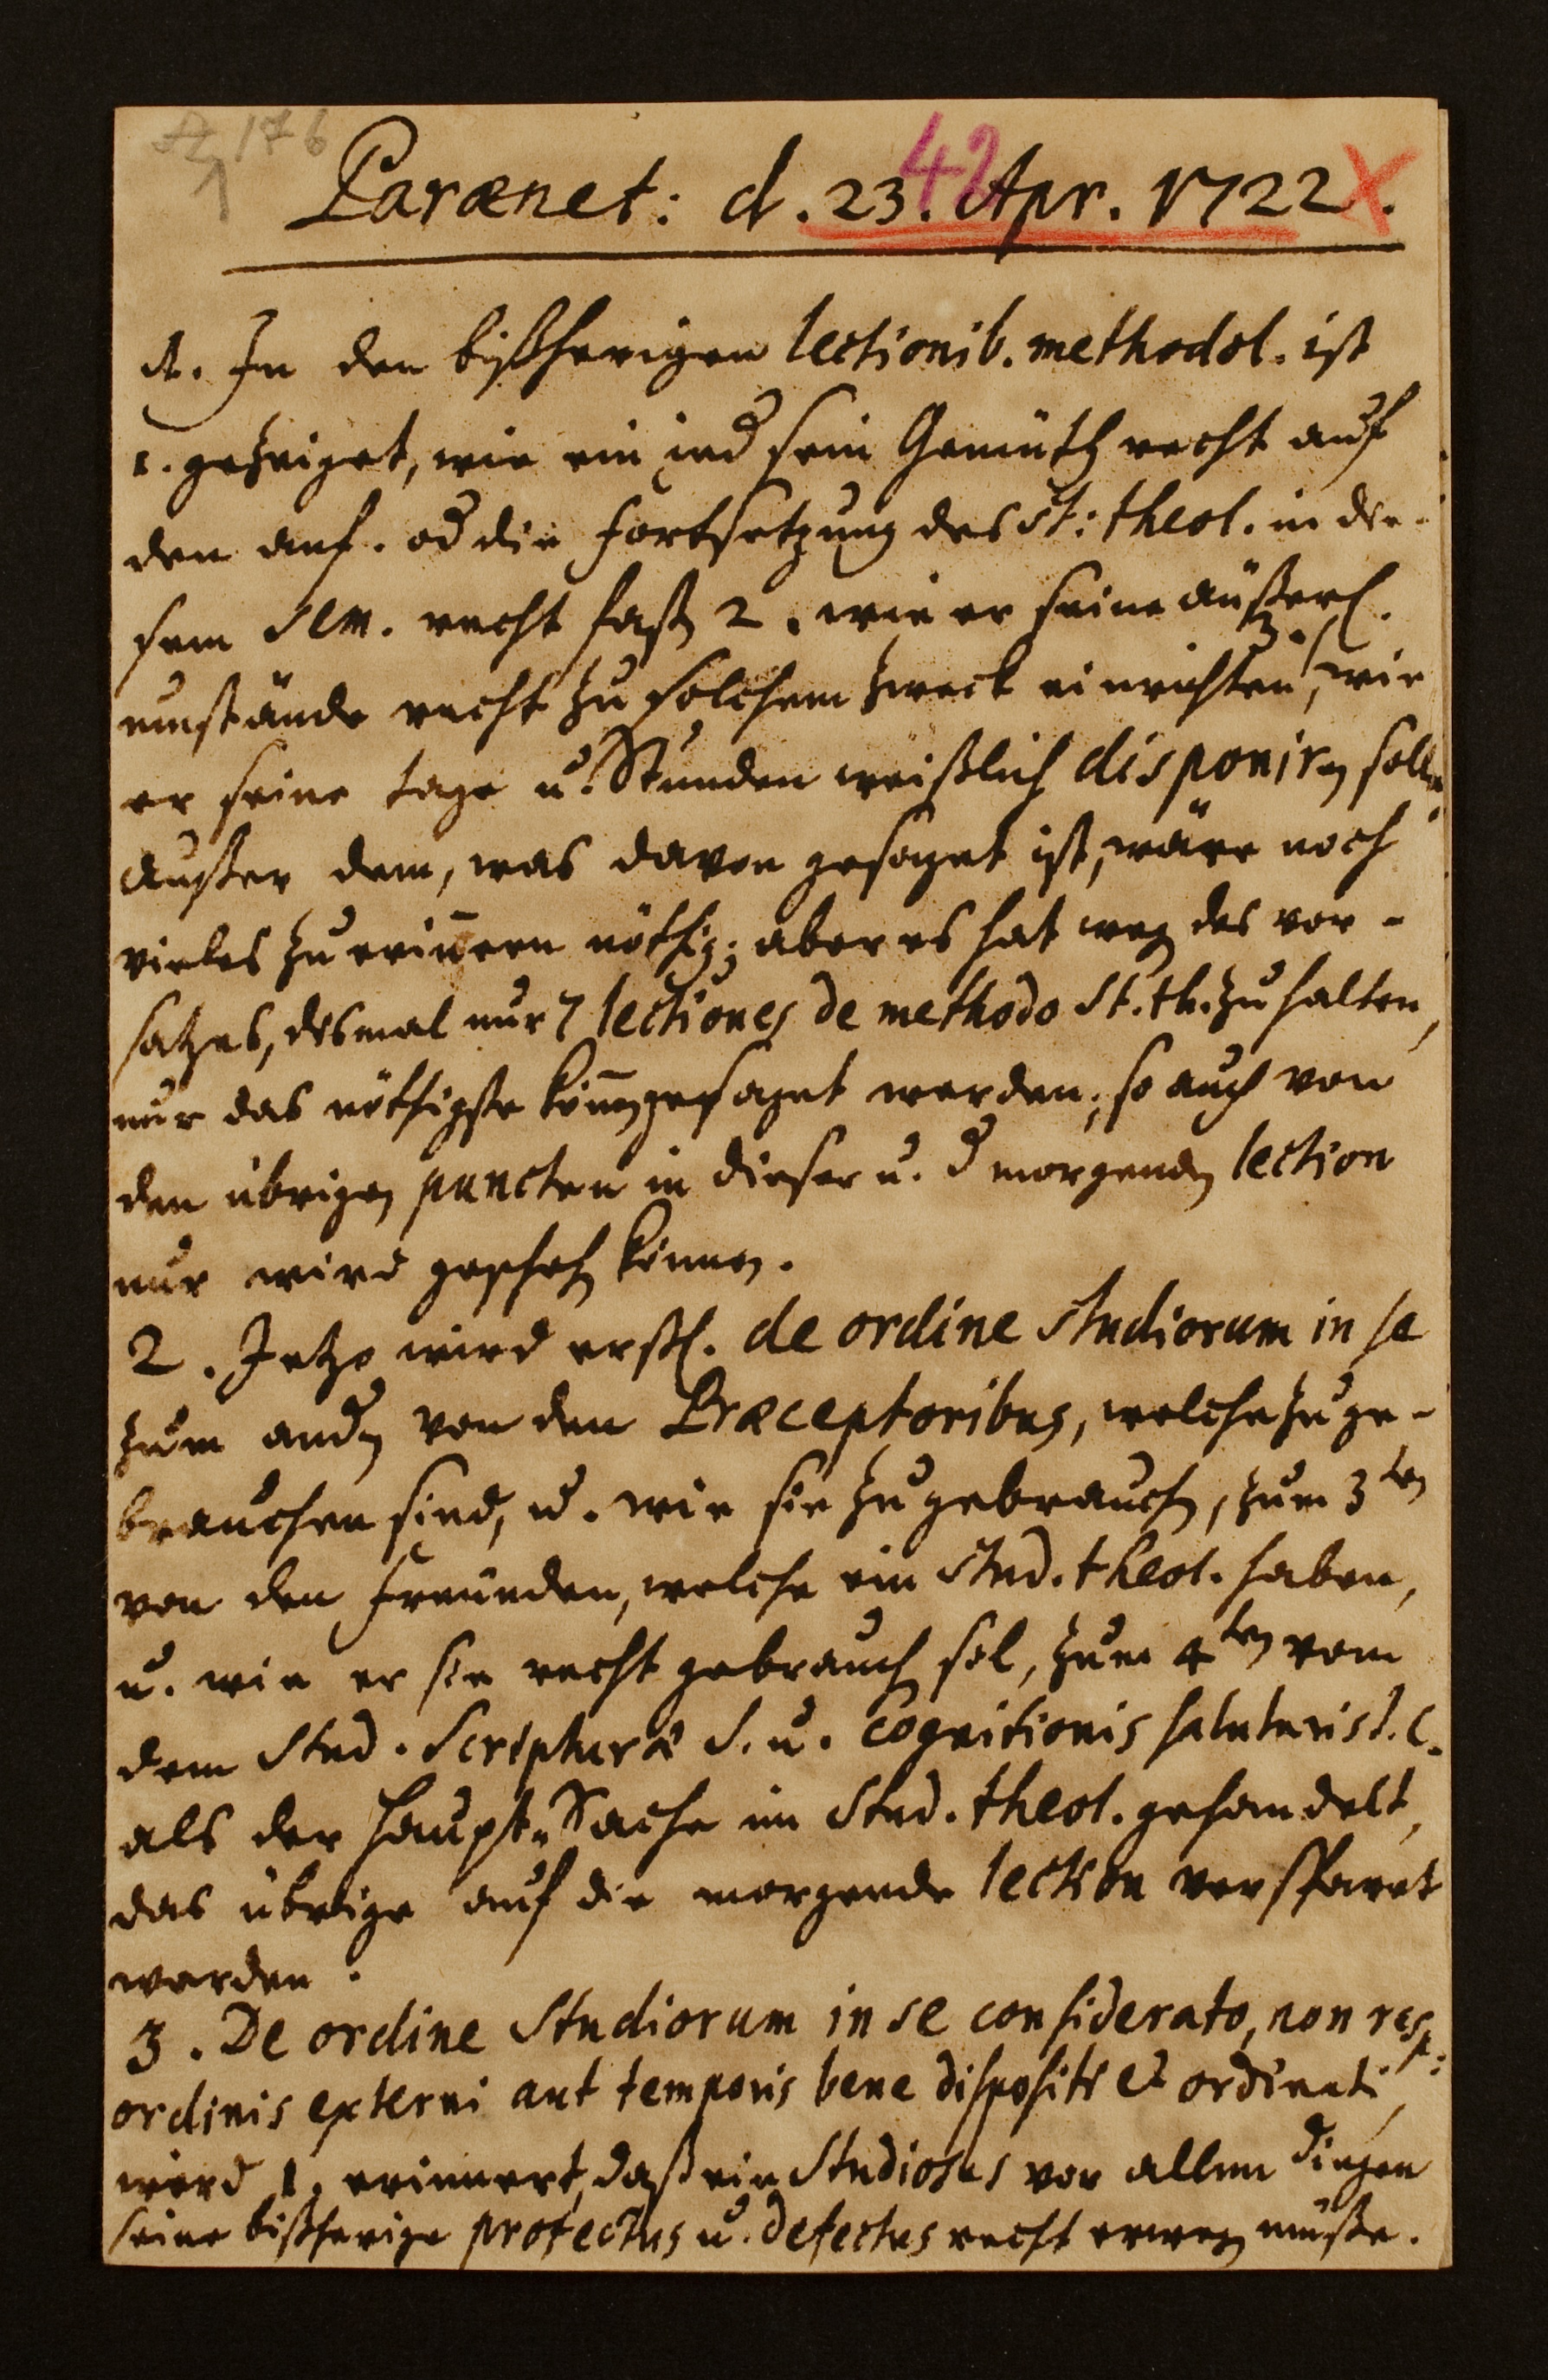 A 176
1
42
Parænet: d. 23. Apr. 1722. X
A. In den bißherigen lectionib. methodol. ist
1. gezeiget, wie ein jed sein Gemüth recht auf
den anf. od die fortsetzung des st: theol. in die-
sem Sem. recht faß 2. wie er seine äußerl.
umstände recht zu solchem zweck einrichten, 3. wie
er seine tage u. Stunden weißlich disponiren solle.
außer dem, was davon gesaget ist, wäre noch
vieles zu erinern nöthig; aber es hat weg des vor-
satzes, dismal nur 7 lectiones de methodo St. th. zu halten,
nur das nöthigste könen gesaget werden; so auch von
den übrigen puncten in dieser u. d morgenden lection
nur wird gescheh können.
2. Jetzo wird erstl. de ordine studiorum in se
zum andn von den Præceptoribus, welche zu ge-
brauchen sind, u. wie sie zu gebrauchen, zum 3ten
von den freunden, welche ein stud. theol. haben,
u. wie er sie recht gebrauch sol, zum 4ten vom
dem Stud. Scripturæ S. u. cognitionis salutaris J. C.
als der Haupt-Sache im Stud. theol. gehandelt,
das übrige auf die morgende lection versparet
werden.
3. De ordine Studiorum in se considerato, non resp:
ordinis externi aut temporis bene dispositi et ordinati,
wird 1. erinnert, daß ein Studiosus vor allen dingen
seine bißherige profectus u. defectus recht erweg müße.